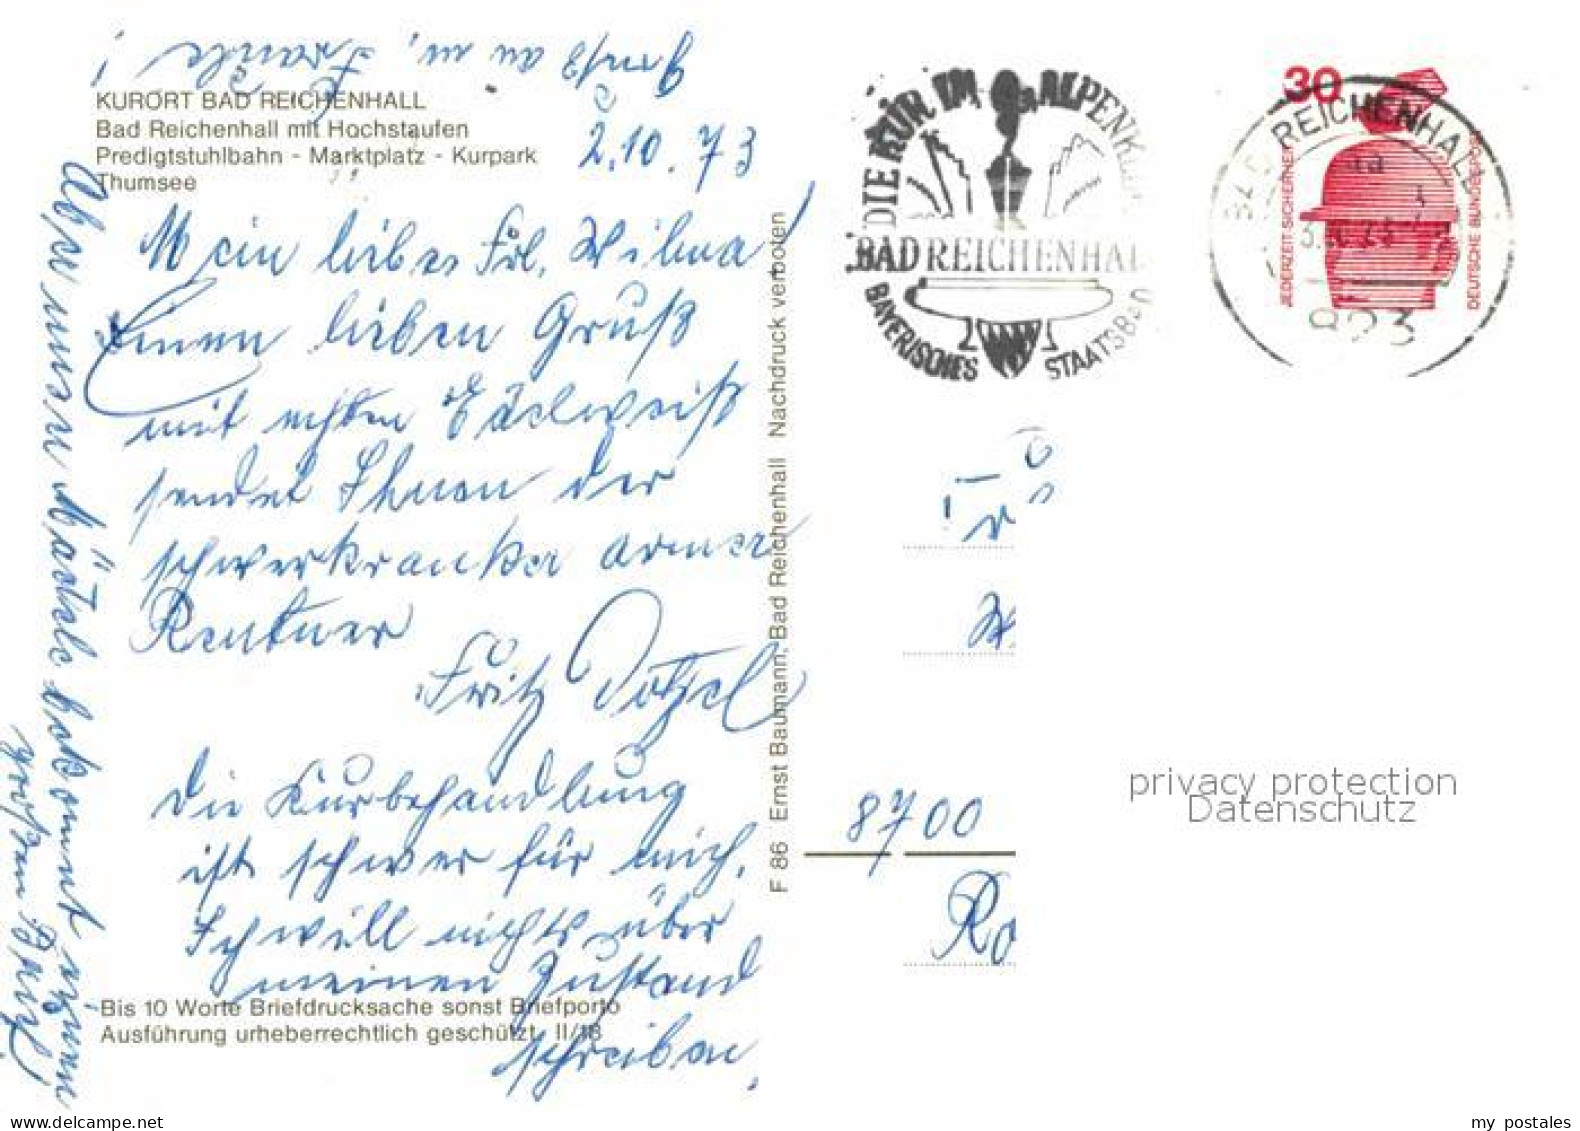 Gruß an m. Frank !
KURORT BAD REICHENHALL
Bad Reichenhall mit Hochstaufen
Predigtstuhlbahn - Marktplatz - Kurpark
Thumsee
2.10.73
Mein liebes Frl. Wilma
Einen lieben Gruß
mit echten Edelweiß
sendet Ihnen der
schwerkranker armer
Rentner
Fritz Dötzel
Die Kurbehandlung
ist schwer für mich.
Ich will nichts über
meinen Zustand
schreiben.
Bis 10 Worte Briefdrucksache sonst Briefporto
Ausführung urheberrechtlich geschützt II/18
Aber mein Mädele bekommt einen
F 86 Ernst Baumann, Bad Reichenhall Nachdruck verboten
DIE KUR IM ALPENKL
BAD REICHENHAL
BAYERISCHES STAATSBAD
30
JEDERZEIT SICHERHEIT
DEUTSCHE BUNDESPOST
BAD REICHENHALL
823
W.
8700
privacy protection
Datenschutz
my postales